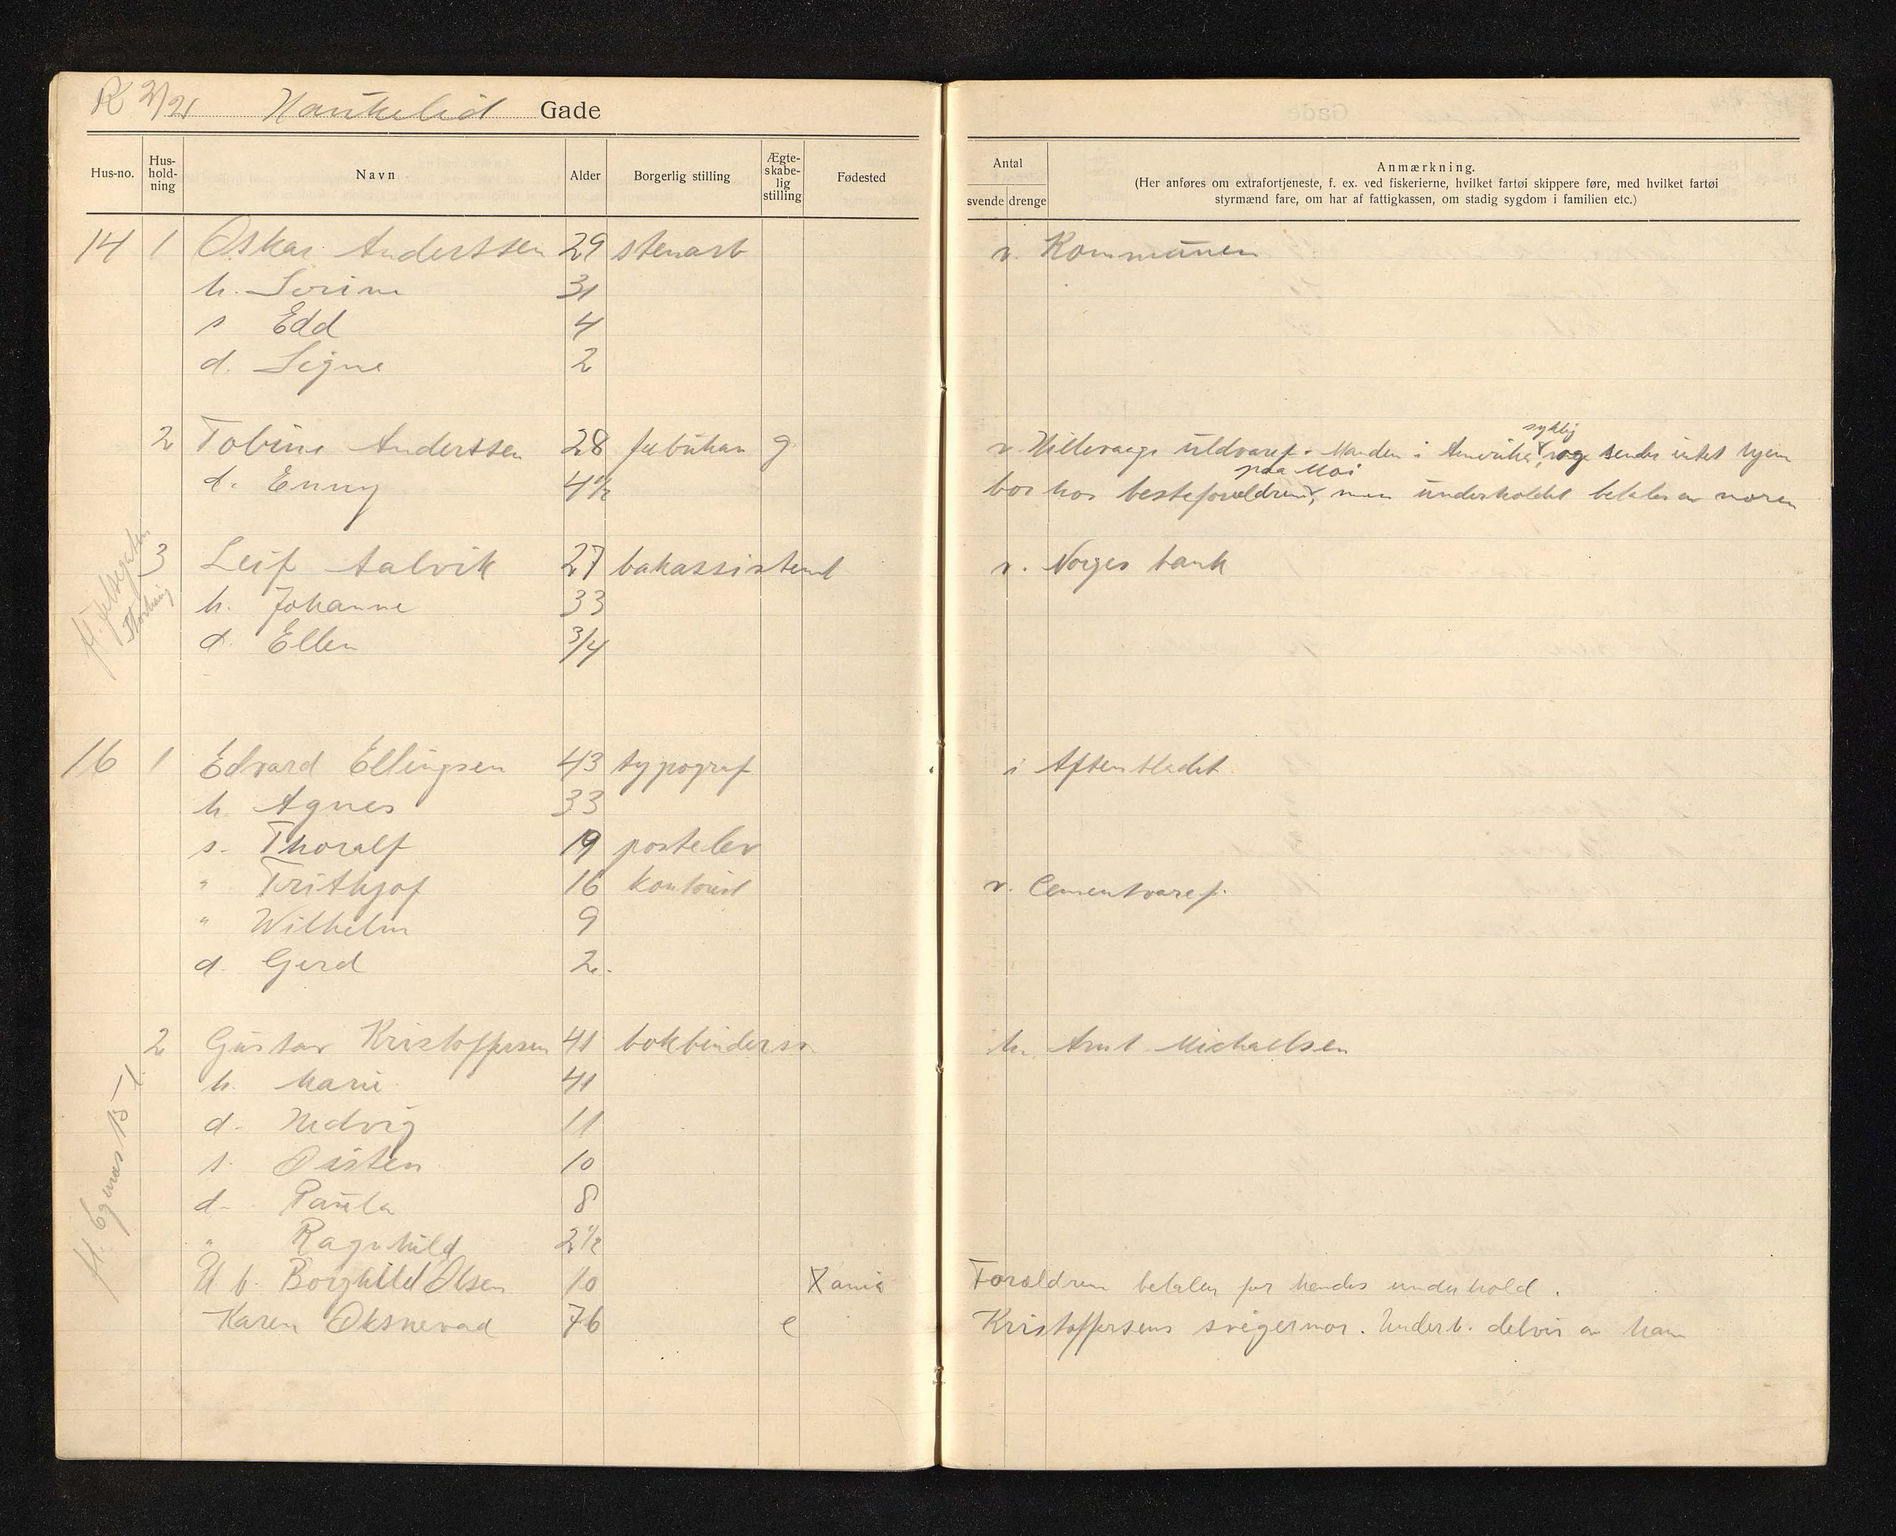 R 2/21 Haukelid Gade
Hus-no. Hus-hold-ning Navn Alder Borgerlig stilling Ægte-skabe-lig stilling Fødested Antal svende drenge Anmærkning.
(Her anføres om extrafortjeneste, f. ex. ved fiskerierne, hvilket fartøi skippere føre, med hvilket fartøi
styrmænd fare, om har af fattigkassen, om stadig sygdom i familien etc.)
14 1 Oskar Anderssen 29 stenarb v. Kommunen
h. Serine 31
s Edd 4
d. Signe 2
syklig
2 Tobine Anderssen 28 g v. Hillevaags uldvaref. Manden i Amerika, og sender intet hjem
paa Moi
d. Enny 4 1/2 bor hos besteforældrene, men underholdet betales av moren
3 Leif Aalvik 27 bakassistent v. Norges bank
h. Johanne 33
d. Ellen 3/4
16 1 Edvard Ellingsen 43 typograf i Aftenbladet
h. Agnes 33
s. Thoralf 19 postelev
" Frithjof 16 kontorist v. Cementvaref.
" Wilhelm 9
d. Gerd 2.
2 Gustav Kristoffersen 41 bokbindersv h. Arnt Michaelsen
h. Marie 41
d. Hedvig 11
s. Øisten 10
d. Paula 8
" Ragnhild 2 1/2
U b. Borghild Olsen 10 Xania Forældrene betaler for hendes underhold.
Karen Oksnevad 76 e Kristoffersens svigermor. Underh. delvis av ham